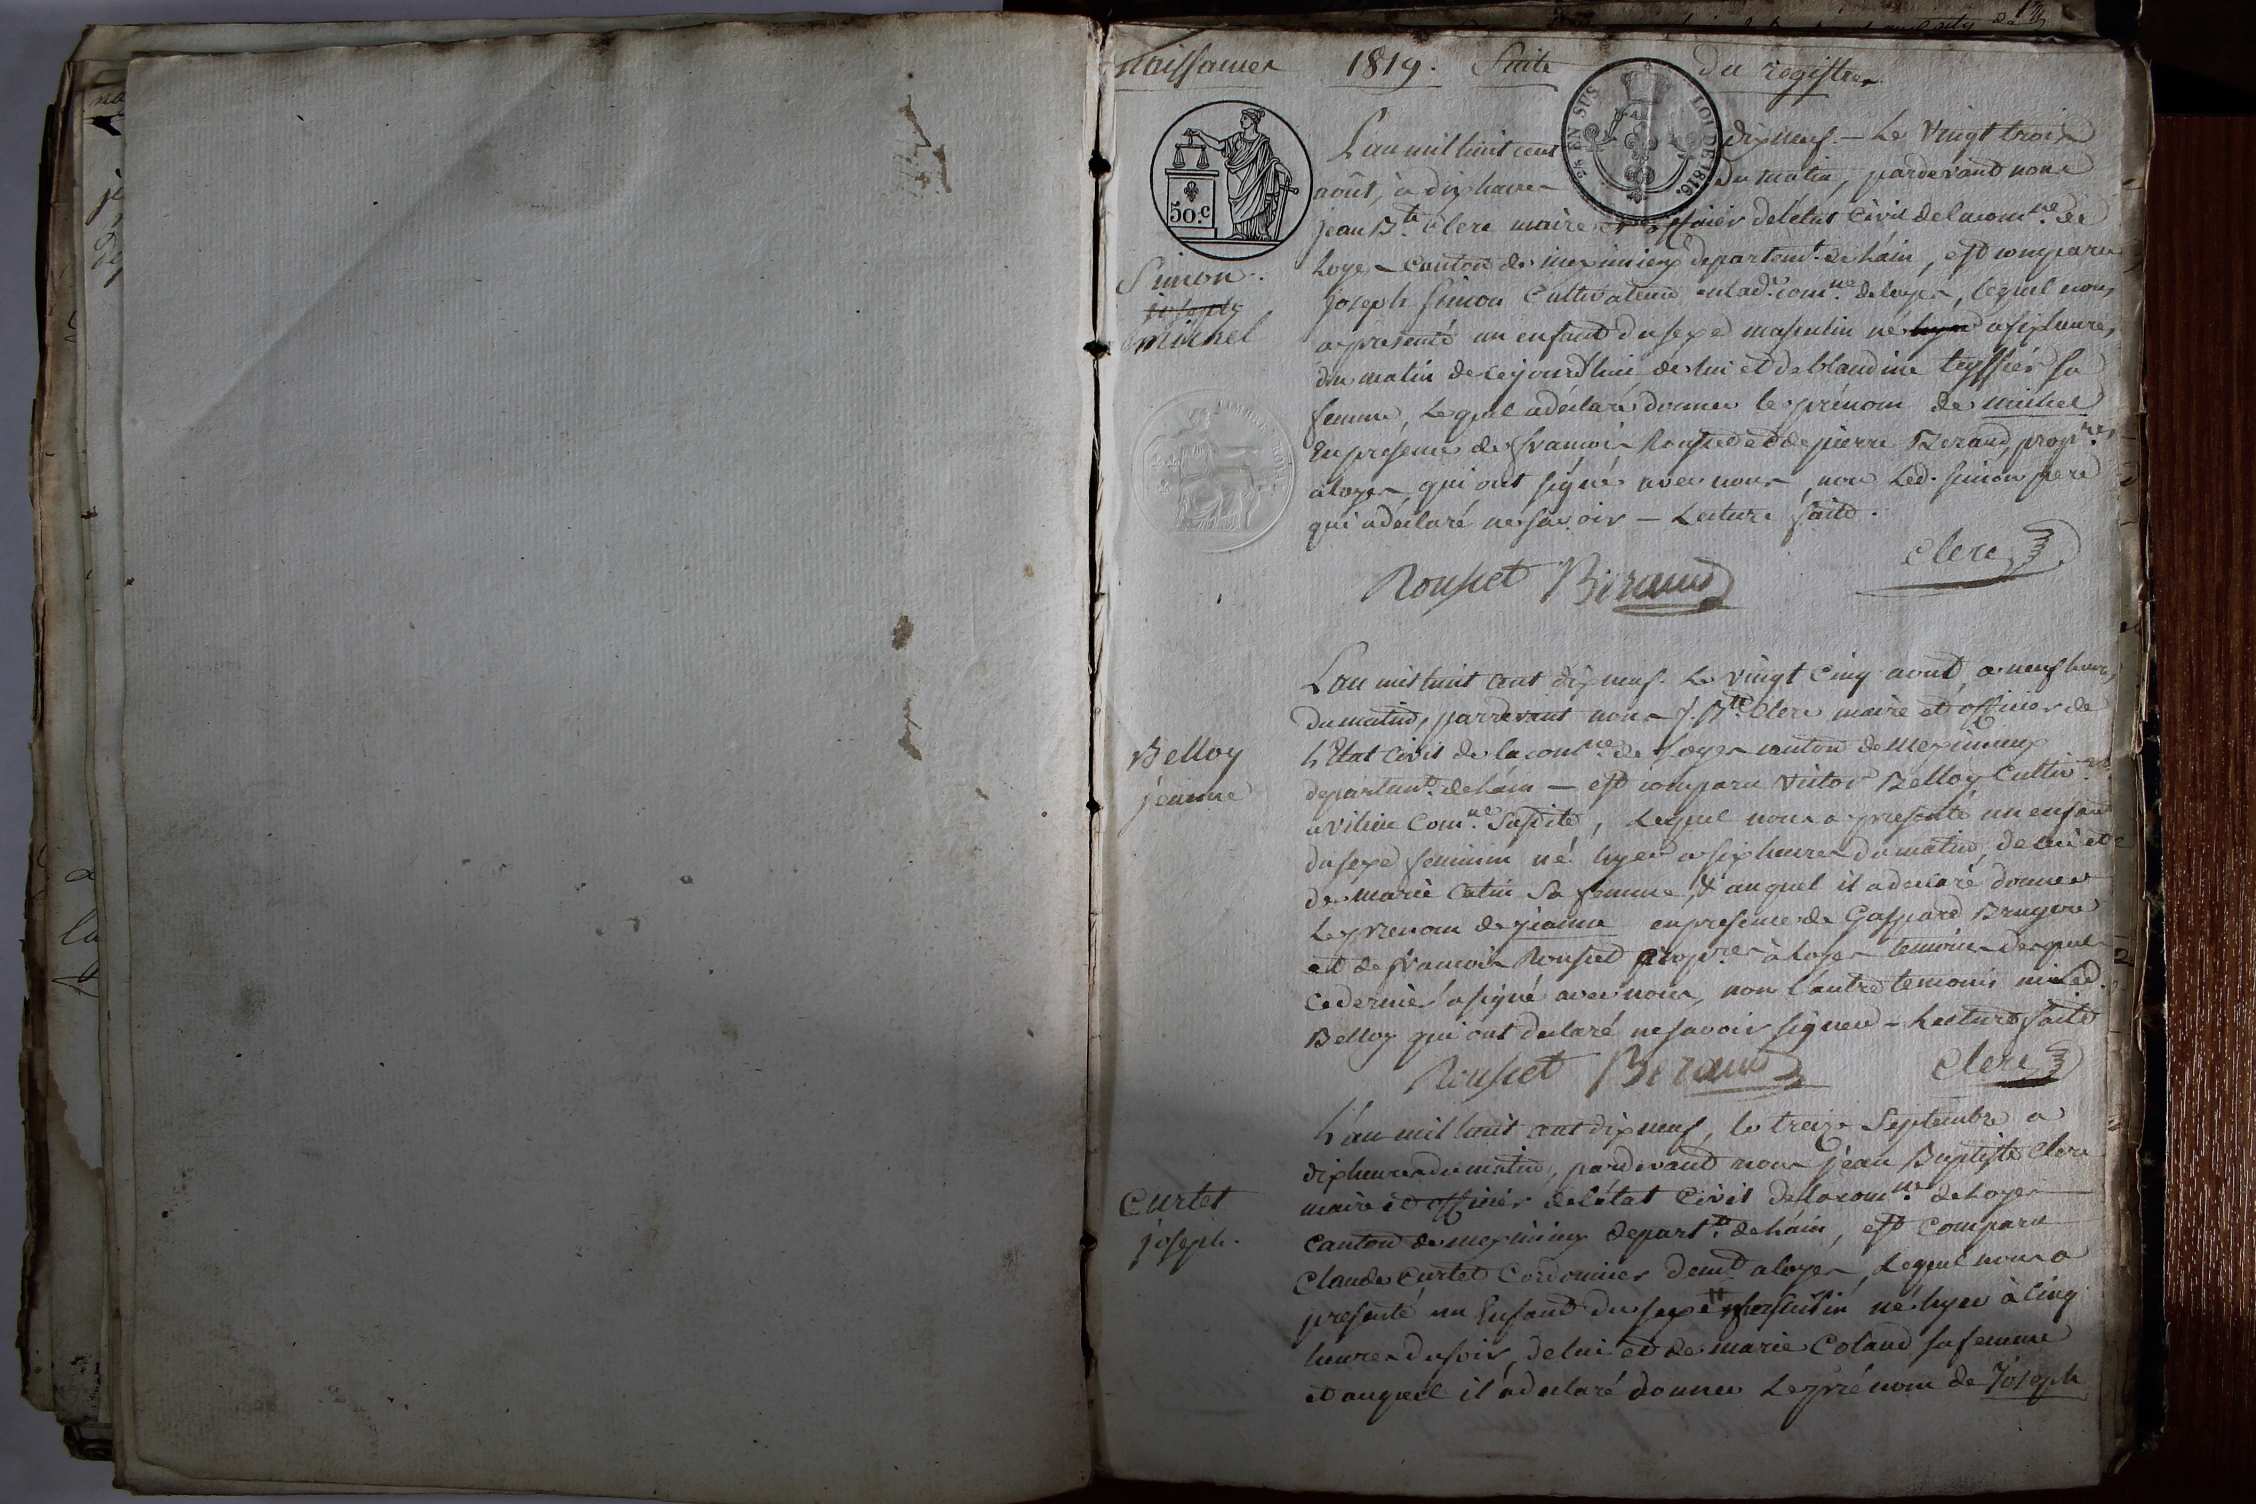 naissances 1819. Suite du registre
50.c
2/10 EN SUS LOI DE 1816.
Simon
joseph
michel
L'an mil huit cent dix neuf. — Le Vingt trois
août, à dix heures du matin, pardevant nous
jean B.te Clerc maire et officier de l'état Civil de la com.ne de
Loyes canton de meximieux departem.t de l'ain, est comparu
joseph simon Cultivateur en lad.e com.ne de loyes, lequel nous
a présenté un enfant du sexe masculin né hyer a six heures
du matin de cejourd'hui de lui et de blandine teyssier sa
femme, Lequel a déclaré donner le prénom de michel
En presence de francois Rousset et de pierre Beraud, prop.res
a loyes, qui ont signé avec nous, non Led. simon pere
qui a déclaré ne savoir — Lecture faite.
Rousset Beraud Clerc
Belloy
jeanne
L'an mil huit cent dix neuf. Le vingt cinq aout, a neuf heures
du matin, pardevant nous J. B.te Clerc maire et officier de
L'Etat Civil de la com.ne de Loyes canton de Meximieux
departem.t de l'ain — est comparu Victor Belloy Cultiv.r
a com.ne susdite, Lequel nous a presenté un enfant
du sexe feminin né hyer a six heures du matin, de lui et
de marie Catin sa femme, & auquel il a declaré donner
Le prenom de jeanne en presence de Gaspard Brugere
et de francois Rousset prop.res à Loyes temoins desquels
ce dernier a signé avec nous, non l'autre temoins ni Led.
Belloy qui ont declaré ne savoir signer — Lecture faite
Rousset Beraud Clerc
Curtet
joseph.
L'an mil huit cent dix neuf, le treize Septembre a
dix heures du matin, pardevant nous jean Baptiste Clerc
maire et officier de l'état Civil de la com.ne de Loyes
Canton de meximieux depart.t de l'ain, est comparu
Claude Curtet Cordonnier dem.t a loyes, Lequel nous a
presenté un Enfant du sexe masculin né hyer à cinq
heures du soir, de lui et de marie Coland sa femme
et auquel il a declaré donner Le prénom de Joseph